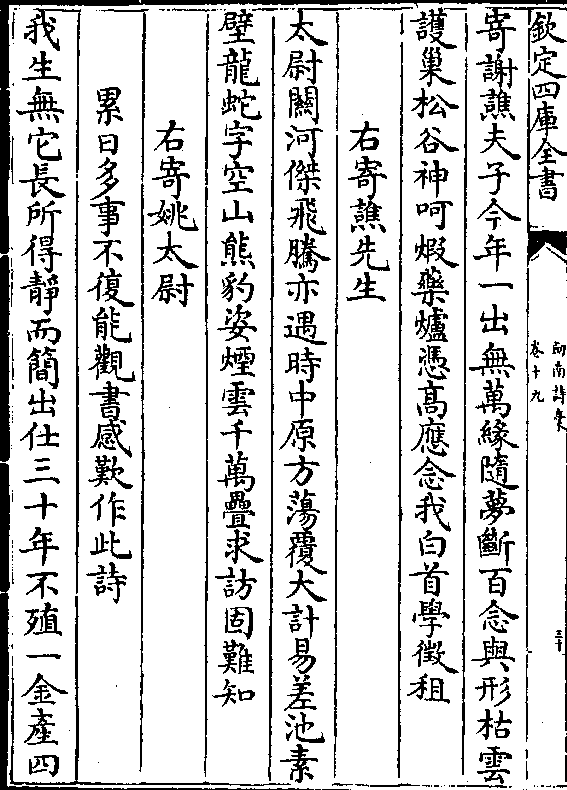 欽定四庫全書
劍南詩槀
卷十九
三十
寄謝譙夫子今年一出無萬緣隨夢斷百念與形枯雲
護巢松谷神呵煆藥爐憑高應念我白首學徵租
右寄譙先生
太尉關河傑飛騰亦遇時中原方蕩覆大計易差池素
壁龍蛇字空山熊豹姿煙雲千萬疊求訪固難知
右寄姚太尉
累日多事不復能觀書感歎作此詩
我生無它長所得靜而簡出仕三十年不殖一金產四